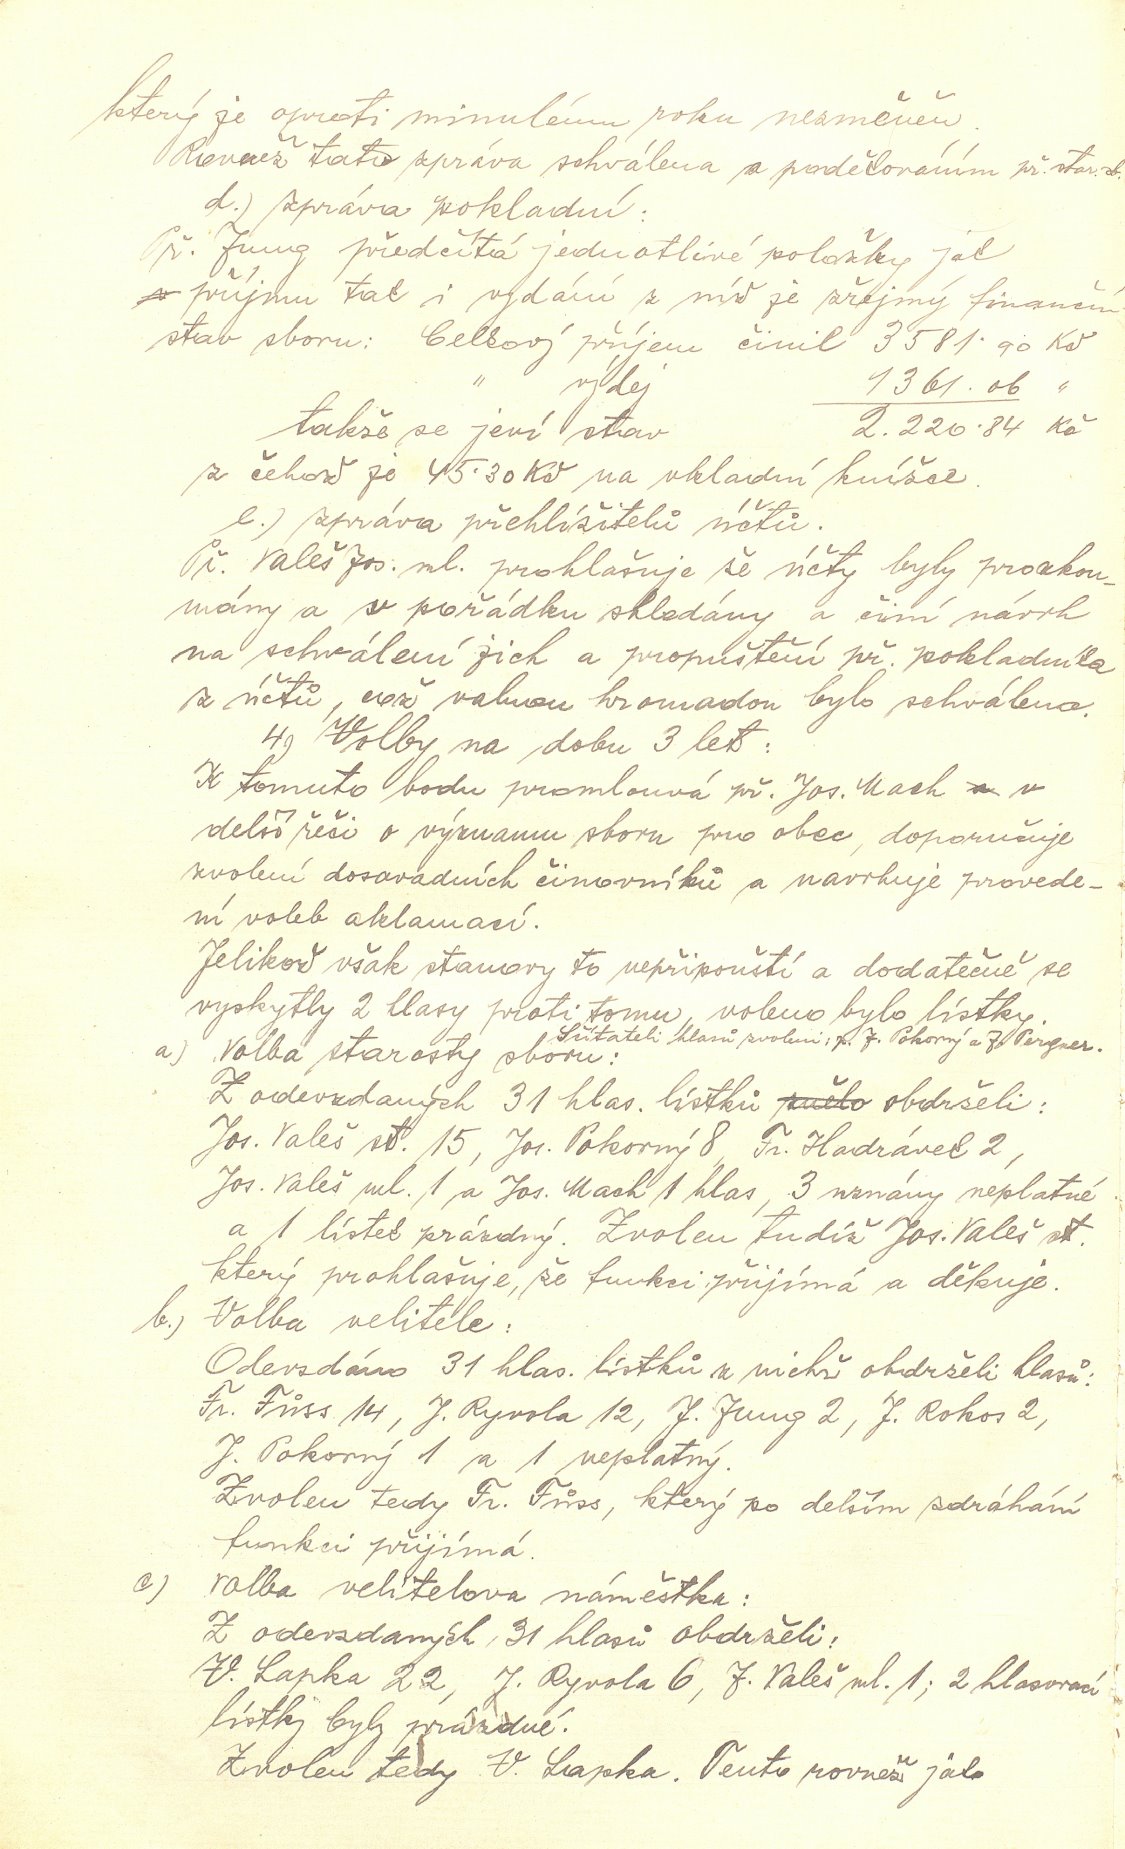 který je oproti minulému roku nezměněn.
Rovněž tato zpráva schválena s poděkováním př. star. sb.
d.) zpráva pokladní:
Př. Jung předčítá jednotlivé položky jak
příjmu tak i vydání z níž je zřejmý finanční
stav sboru: Celkový příjem činil 3581·90 Kč
" výdej 1361.06 "
takže se jeví stav 2.220·84 Kč
z čehož je 45·30 Kč na vkladní knížce.
e.) zpráva přehlížitelů účtů.
Př. Valeš Jos. ml. prohlašuje že účty byly prozkou-
mány a v pořádku shledány a činí návrh
na schválení jich a propuštění př. pokladníka
z účtů, což valnou hromadou bylo schváleno.
4) Volby na dobu 3 let:
K tomuto bodu promlouvá př. Jos. Mach a v
delší řeči o významu sboru pro obec, doporučuje
zvolení dosavadních činovníků a navrhuje provede-
ní voleb aklamací.
Jelikož však stanovy to nepřipouští a dodatečně se
vyskytly 2 hlasy proti tomu, voleno bylo lístky.
Sčitateli hlasů zvoleni: p. J. Pokorný a J. Pergner.
a) Volba starosty sboru:
Z odevzdaných 31 hlas. lístků znělo obdrželi:
Jos. Valeš st. 15, Jos. Pokorný 8, Fr. Hadrávek 2,
Jos. Valeš ml. 1 a Jos. Mach 1 hlas, 3 uznány neplatné
a 1 lístek prázdný. Zvolen tudíž Jos. Valeš st.
který prohlašuje, že funkci přijímá a děkuje.
b.) Volba velitele:
Odevzdáno 31 hlas. lístků z nichž obdrželi hlasů:
Fr. Füss 14, J. Ryvola 12, J. Jung 2, J. Rokos 2,
J. Pokorný 1 a 1 neplatný.
Zvolen tedy Fr. Füss, který po delším zdráhání
funkci přijímá.
c) Volba velitelova náměstka:
Z odevzdaných 31 hlasů obdrželi:
V. Lapka 22, J. Ryvola 6, J. Valeš ml. 1; 2 hlasovací
lístky byly prázdné.
Zvolen tedy V. Lapka. Tento rovněž jak